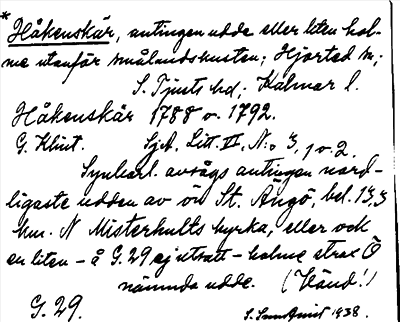 * Håkenskär, antingen udde eller liten hol-
me utanför smålandskusten; Hjorted sn;
S. Tjusts hd; Kalmar l.
Håkenskär 1788 o. 1792.
G. Klint. SjA, Litt. VI, N:o 3, 1 o. 2.
Synbarl. avsågs antingen nord-
ligaste udden av ön St. Ängö, bel. 13,3
km. N Misterhults kyrka, eller ock
en liten - å G. 29 ej utsatt - holme strax Ö
nämnda udde. (Vänd!)
G. 29. 1938.